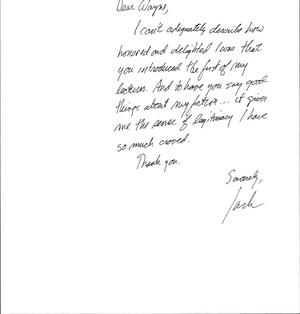 Dear Wayne,
I can't adequately describe how
honored and delighted I was that
you introduced the first of my
lectures. And to have you say good
things about my fiction... it gives
me the sense of legitimacy I have
so much craved.
Thank you.
Sincerely,
Jack